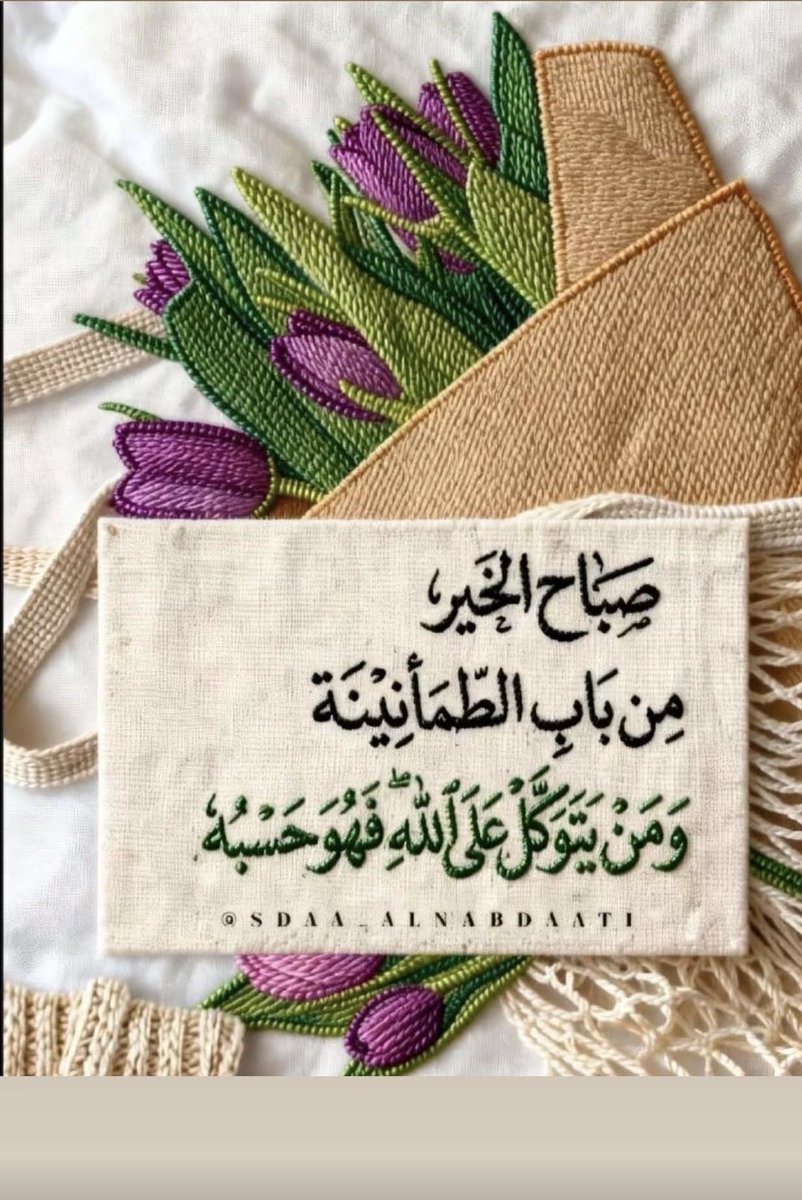 صَبَاح الخَير،
مِن بَابِ الطّمَأنِينَة
وَمَنْ يَتَوَكَّلْ عَلَى ٱللَّهِ ۖ فَهُوَ حَسْبُهُ
@SDAA_ALNABDAATI